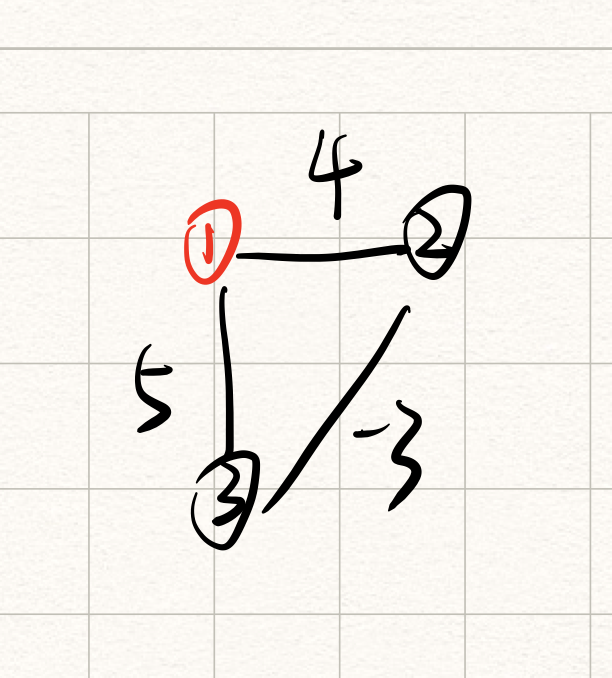 4
1 2
5 -3
3